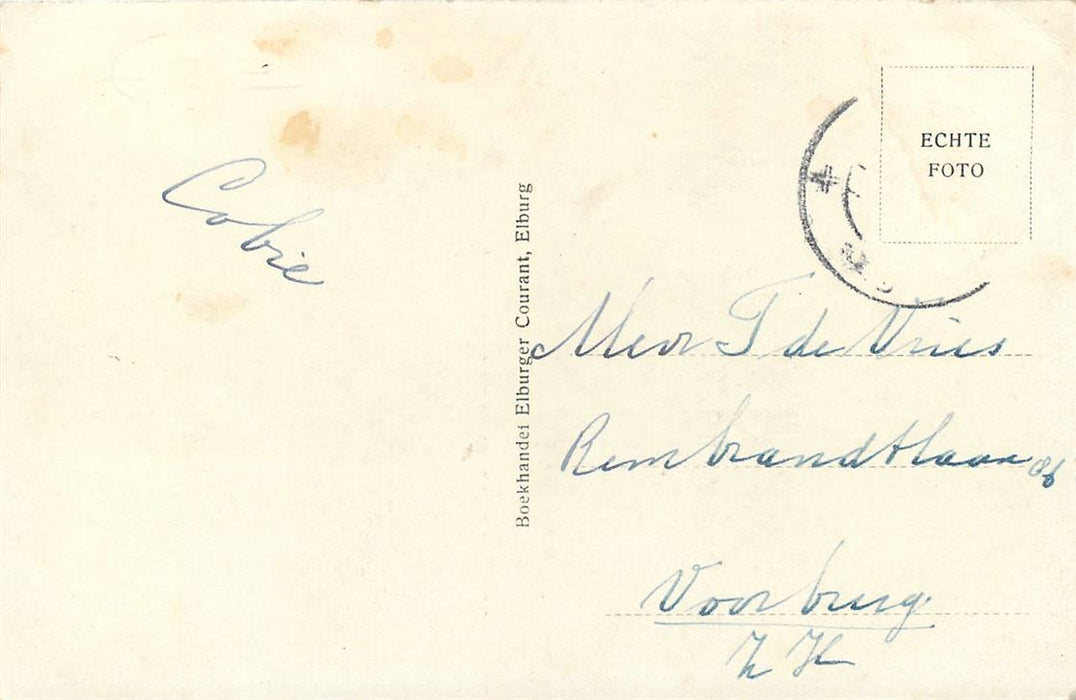 Cobie
Boekhandel Elburger Courant, Elburg
ECHTE
FOTO
Mevr T de Vries
Rembrandtlaan
Voorburg
Z H